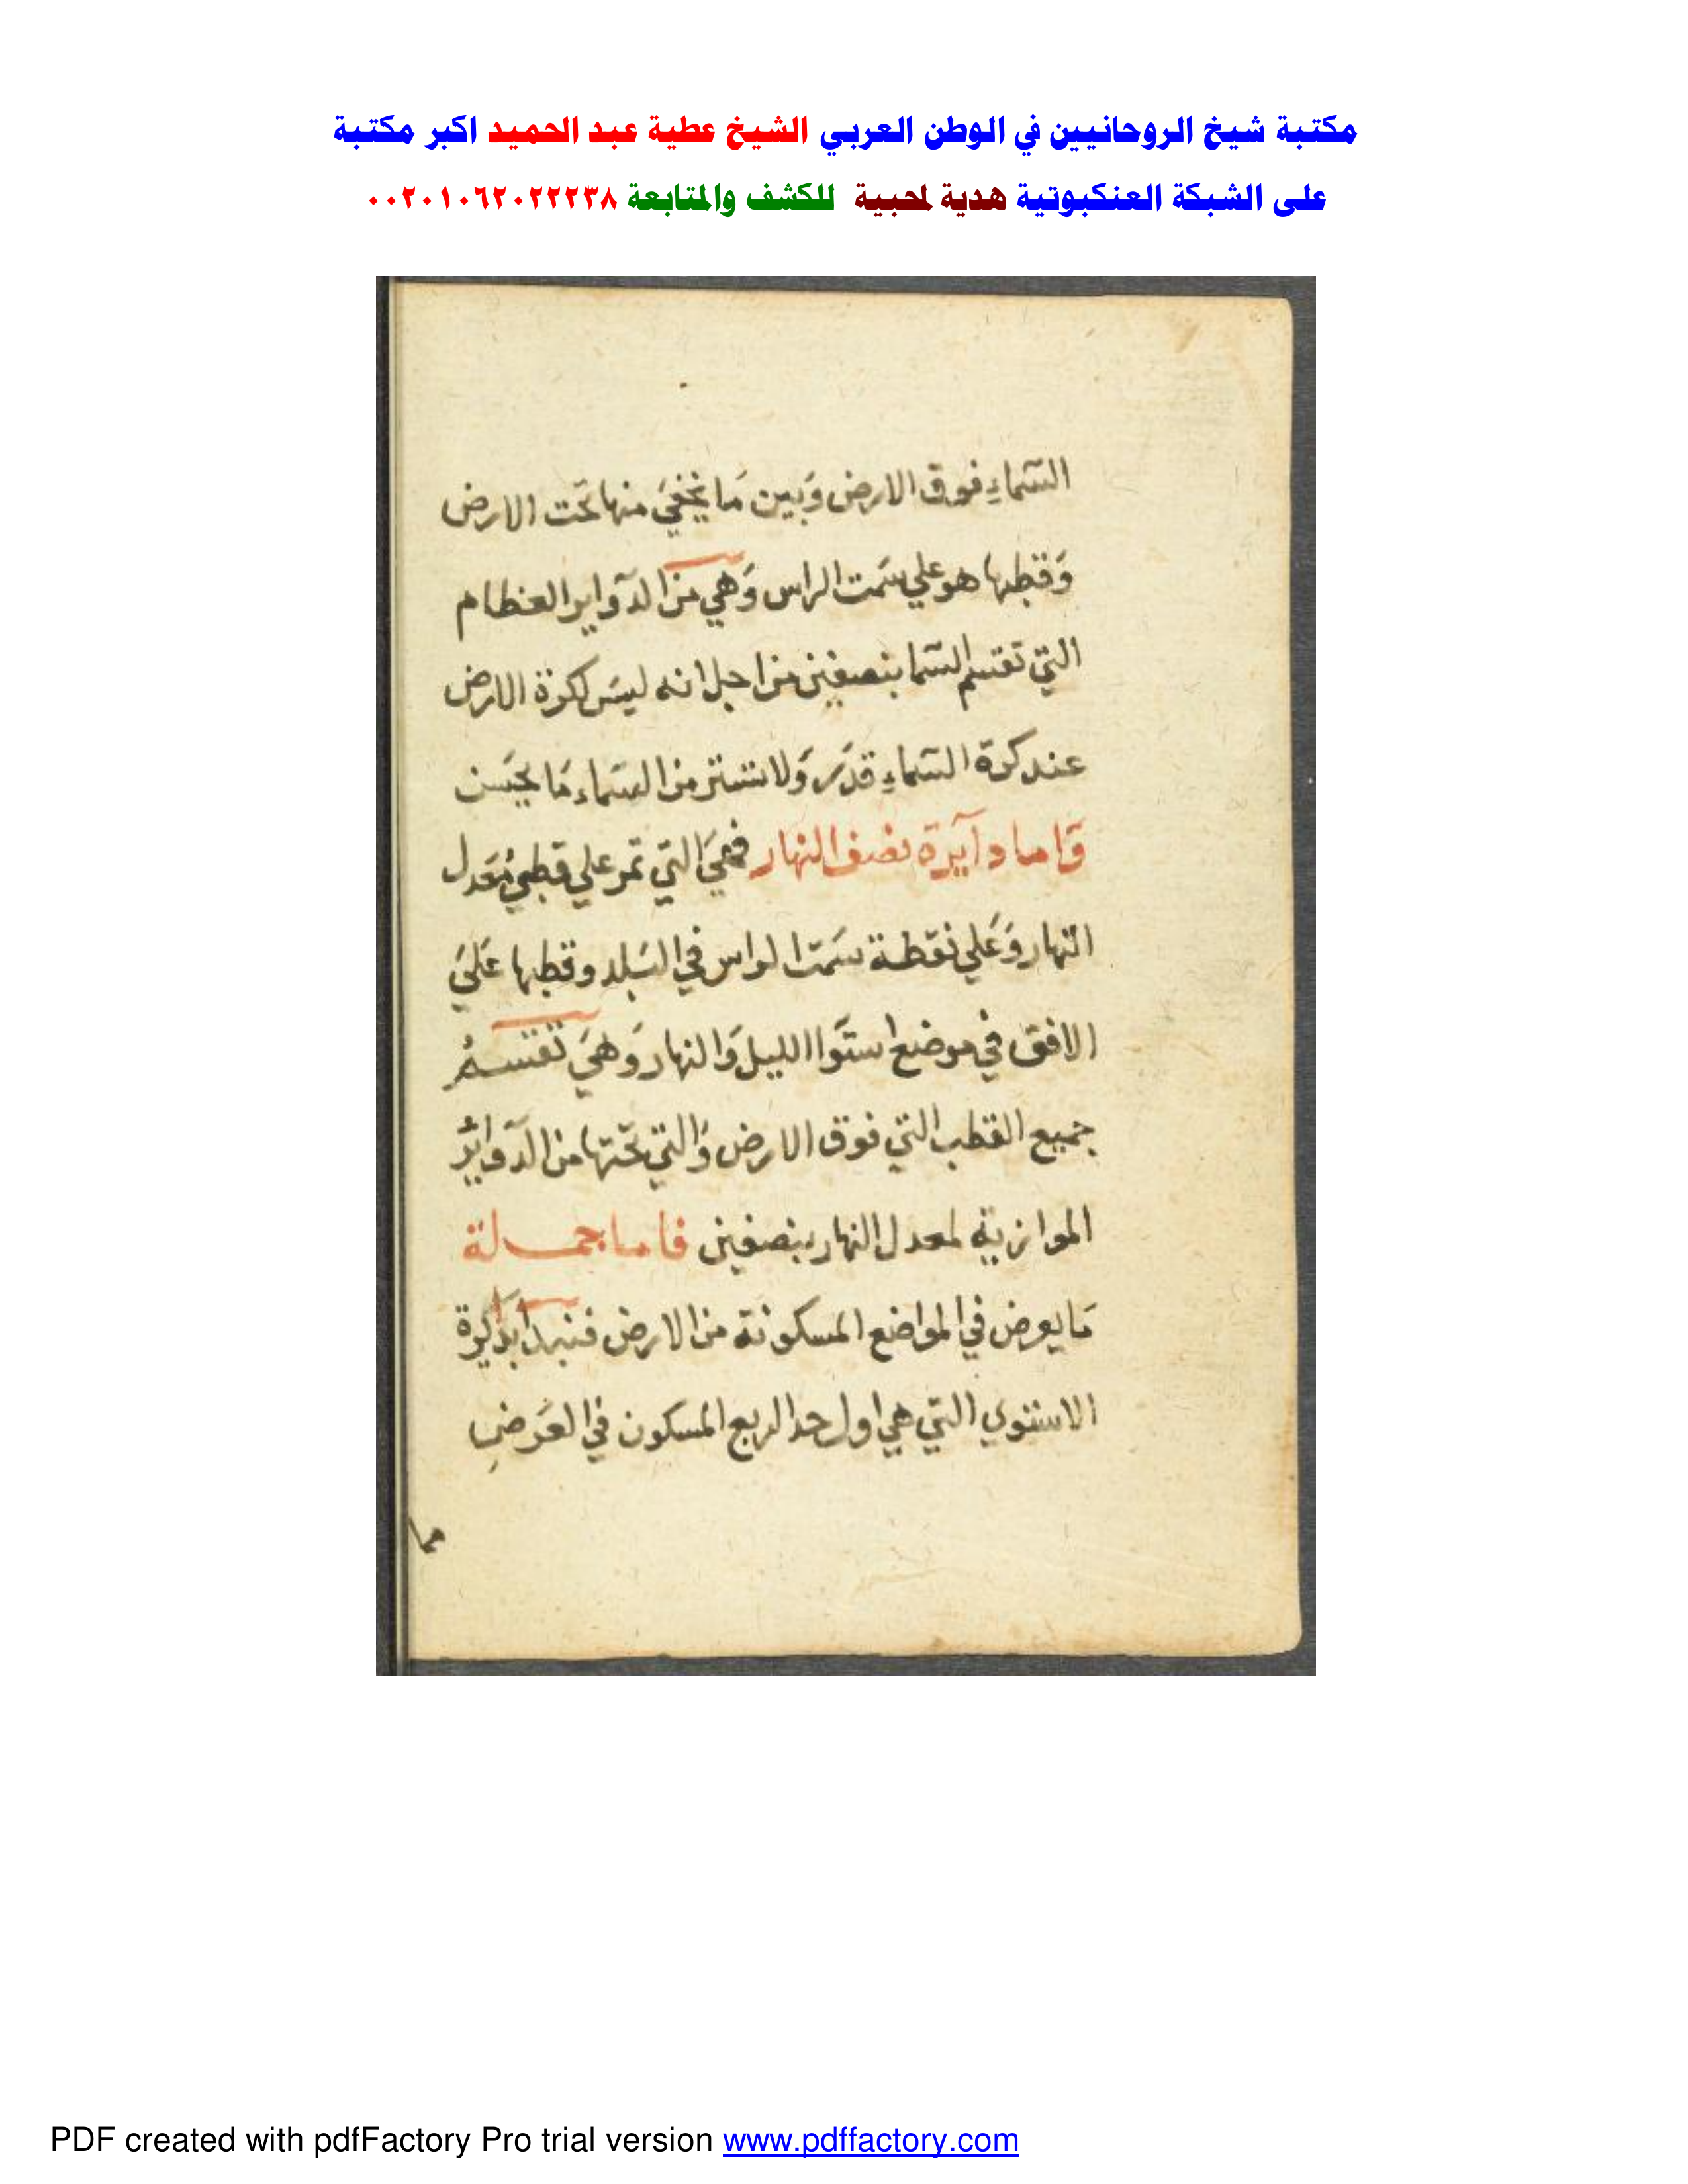 مكتبة شيخ الروحانيين في الوطن العربي الشيخ عطية عبد الحميد اكبر مكتبة
على الشبكة العنكبوتية هدية لمحبية للكشف والمتابعة ٠٠٢٠١٠٦٢٠٢٢٢٣٨
السّماءِ فوق الارض وَبين مَا يخفيَ منها تحَت الارض
وَقطبها هو علي سَمت الراس وَهي من الدوّاير العظام
التي تقتسم السّما بنصفين من اجل انه ليسَ لكرة الارض
عند كرة السّماءِ قدر وَلا تستتر من السّماء مَا يحسَن
وَاما دآيرة نصف النهار فهيَ التي تمر علي قطبي مُعَدل
النهار وَعَلي نقطة سَمت الراس في البَلد وقطبها عَليَ
الافق في موضع استَوا الليل وَالنهار وَهيَ تقتسمُ
جميع القطب التي فوق الارض وَالتي تحَتها من الدوّائر
الموازية لمعدل النهار بنصفين فاما جملة
مَا يعرض في المواضع المسكونة من الارض فنبدا بدَايرة
الاستوي التي هي اول حد الربع المسكون في العَرضِ
مما
PDF created with pdfFactory Pro trial version www.pdffactory.com